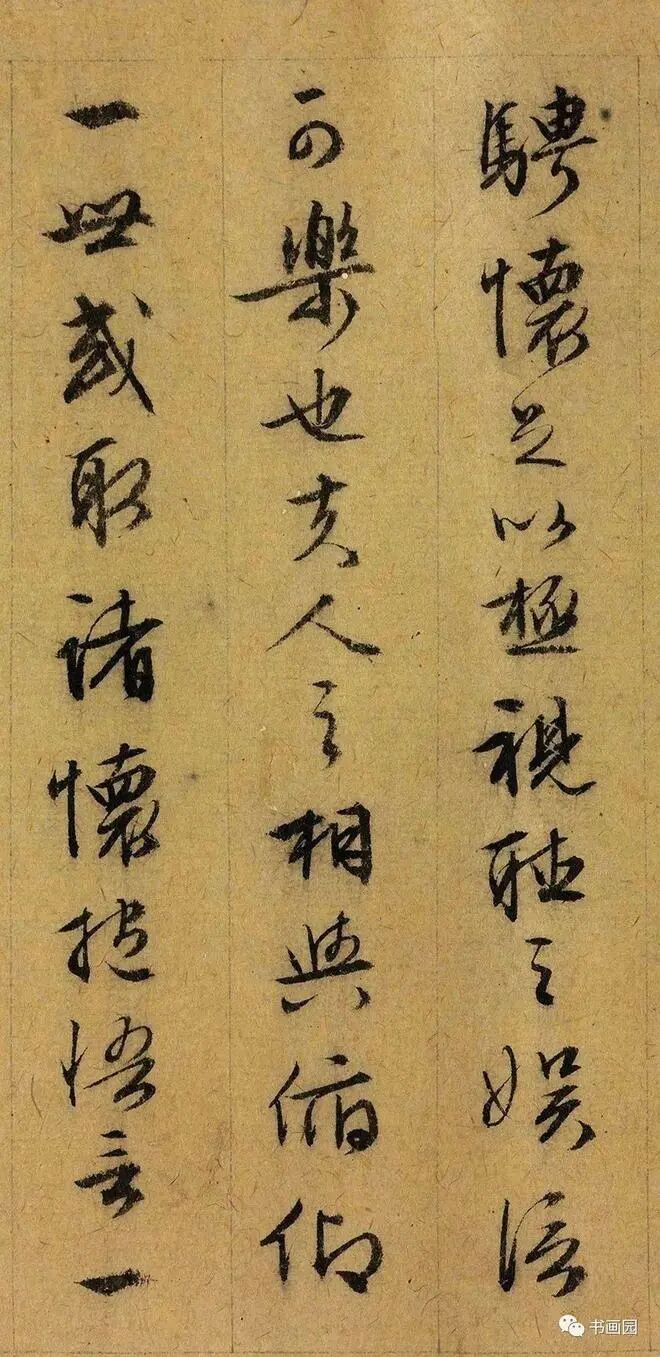 騁懷足以極視聽之娛信
可樂也夫人之相與俯仰
一世或取諸懷抱悟言一
书画园